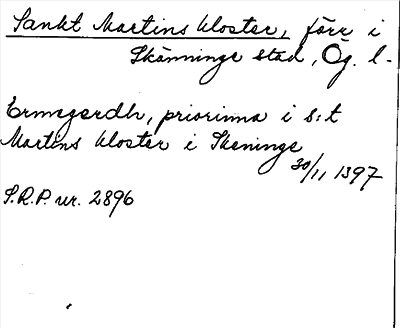 Sankt Martins kloster, förr i
Skänninge stad, Ög. l.
Ermegerdh, priorinna i s:t
Martins kloster i Skeninge
30/11 1397
S.R.P. nr. 2896